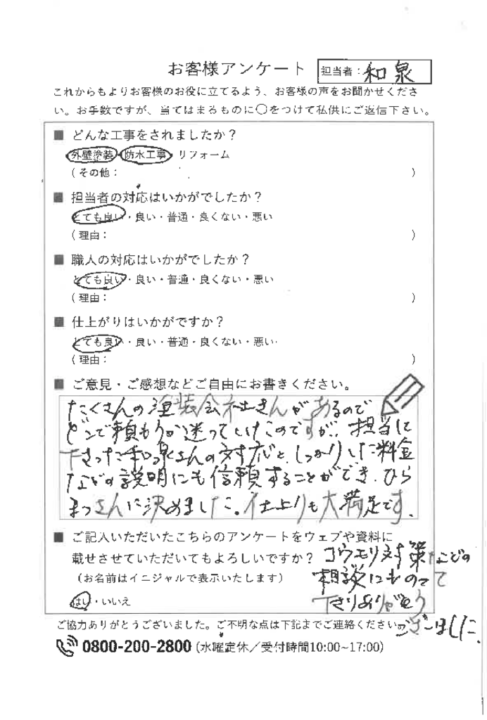 お客様アンケート 担当者: 和泉
これからもよりお客様のお役に立てるよう、お客様の声をお聞かせくださ
い。お手数ですが、当てはまるものに○をつけて私供にご返信下さい。
■ どんな工事をされましたか？
外壁塗装・防水工事・リフォーム
（その他： ）
■ 担当者の対応はいかがでしたか？
とても良い・良い・普通・良くない・悪い
（理由： ）
■ 職人の対応はいかがでしたか？
とても良い・良い・普通・良くない・悪い
（理由： ）
■ 仕上がりはいかがですか？
とても良い・良い・普通・良くない・悪い
（理由： ）
■ ご意見・ご感想などご自由にお書きください。
たくさんの塗装会社さんがあるので
どこで頼もうか迷っていたのですが、担当に
下さった和泉さんの対応と、しっかりした料金
などの説明にも信頼することができ、ひら
まつさんに決めました。仕上りも大満足です。
■ ご記入いただいたこちらのアンケートをウェブや資料に
載せさせていただいてもよろしいですか？
（お名前はイニシャルで表示いたします）
はい・いいえ
コウモリ対策などの
相談にものって
下さりありがとう
ございました。
ご協力ありがとうございました。ご不明な点は下記までご連絡ください。
0800-200-2800 (水曜定休／受付時間10:00~17:00)